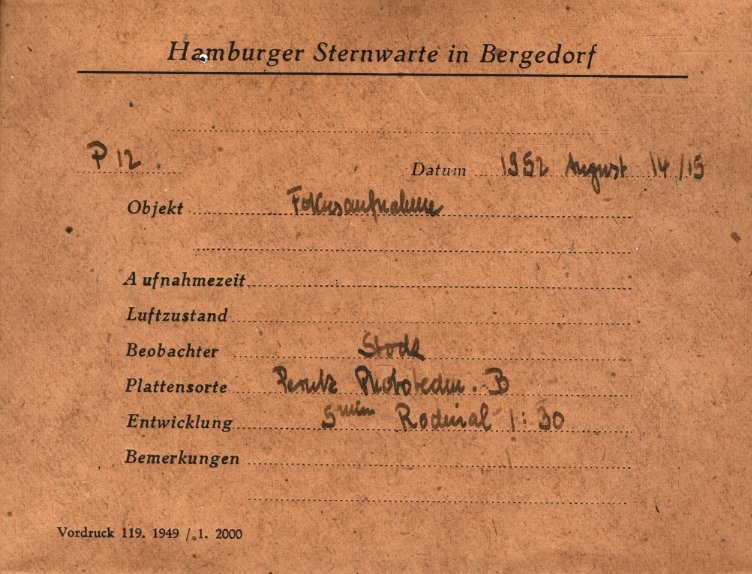 Hamburger Sternwarte in Bergedorf
P 12. Datum 1952 August 14/15
Objekt Fokusaufnahme
Aufnahmezeit
Luftzustand
Beobachter Stock
Plattensorte Perutz B
Entwicklung 5 min Rodinal 1:30
Bemerkungen
Vordruck 119. 1949 / 1. 2000